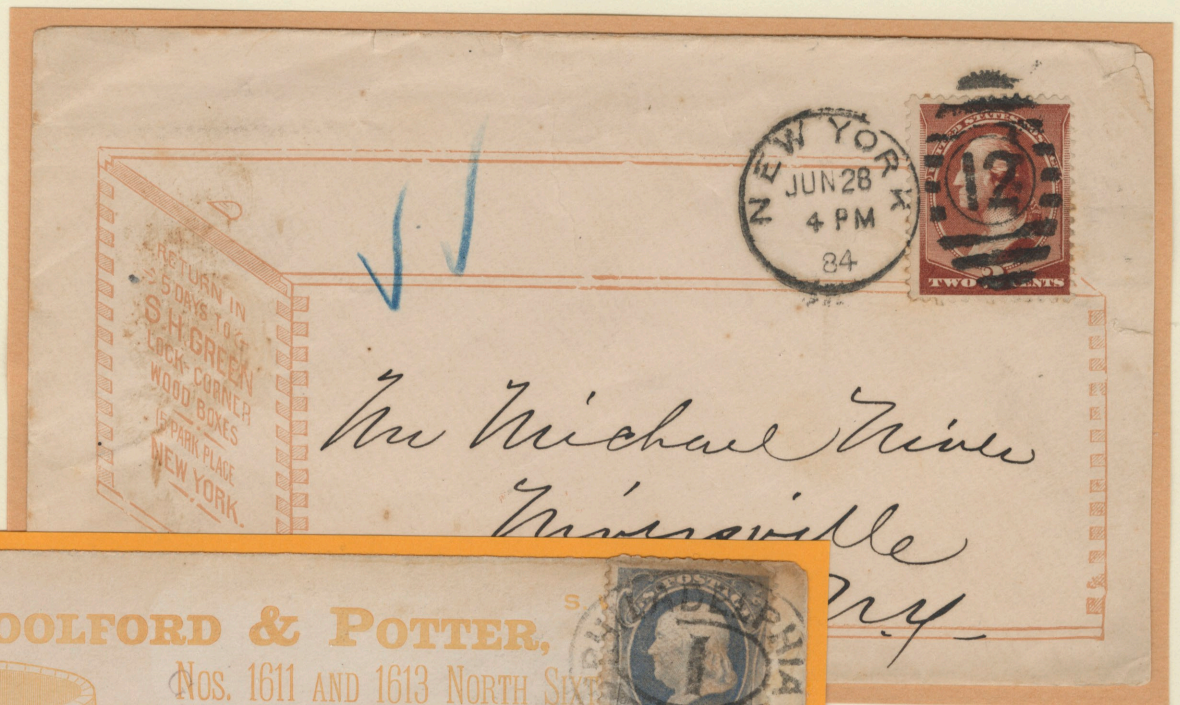 NEW YORK
JUN 28
4 PM
84
12
TWO CENTS
RETURN IN
5 DAYS TO
S. H. GREEN
LOCK-CORNER
WOOD BOXES
PARK PLACE
NEW YORK.
Mr Michael Niver
Niversville
N.Y.
OOLFORD & POTTER,
S
Nos. 1611 AND 1613 NORTH SIXT
POSTA
PHILADELPHIA
1